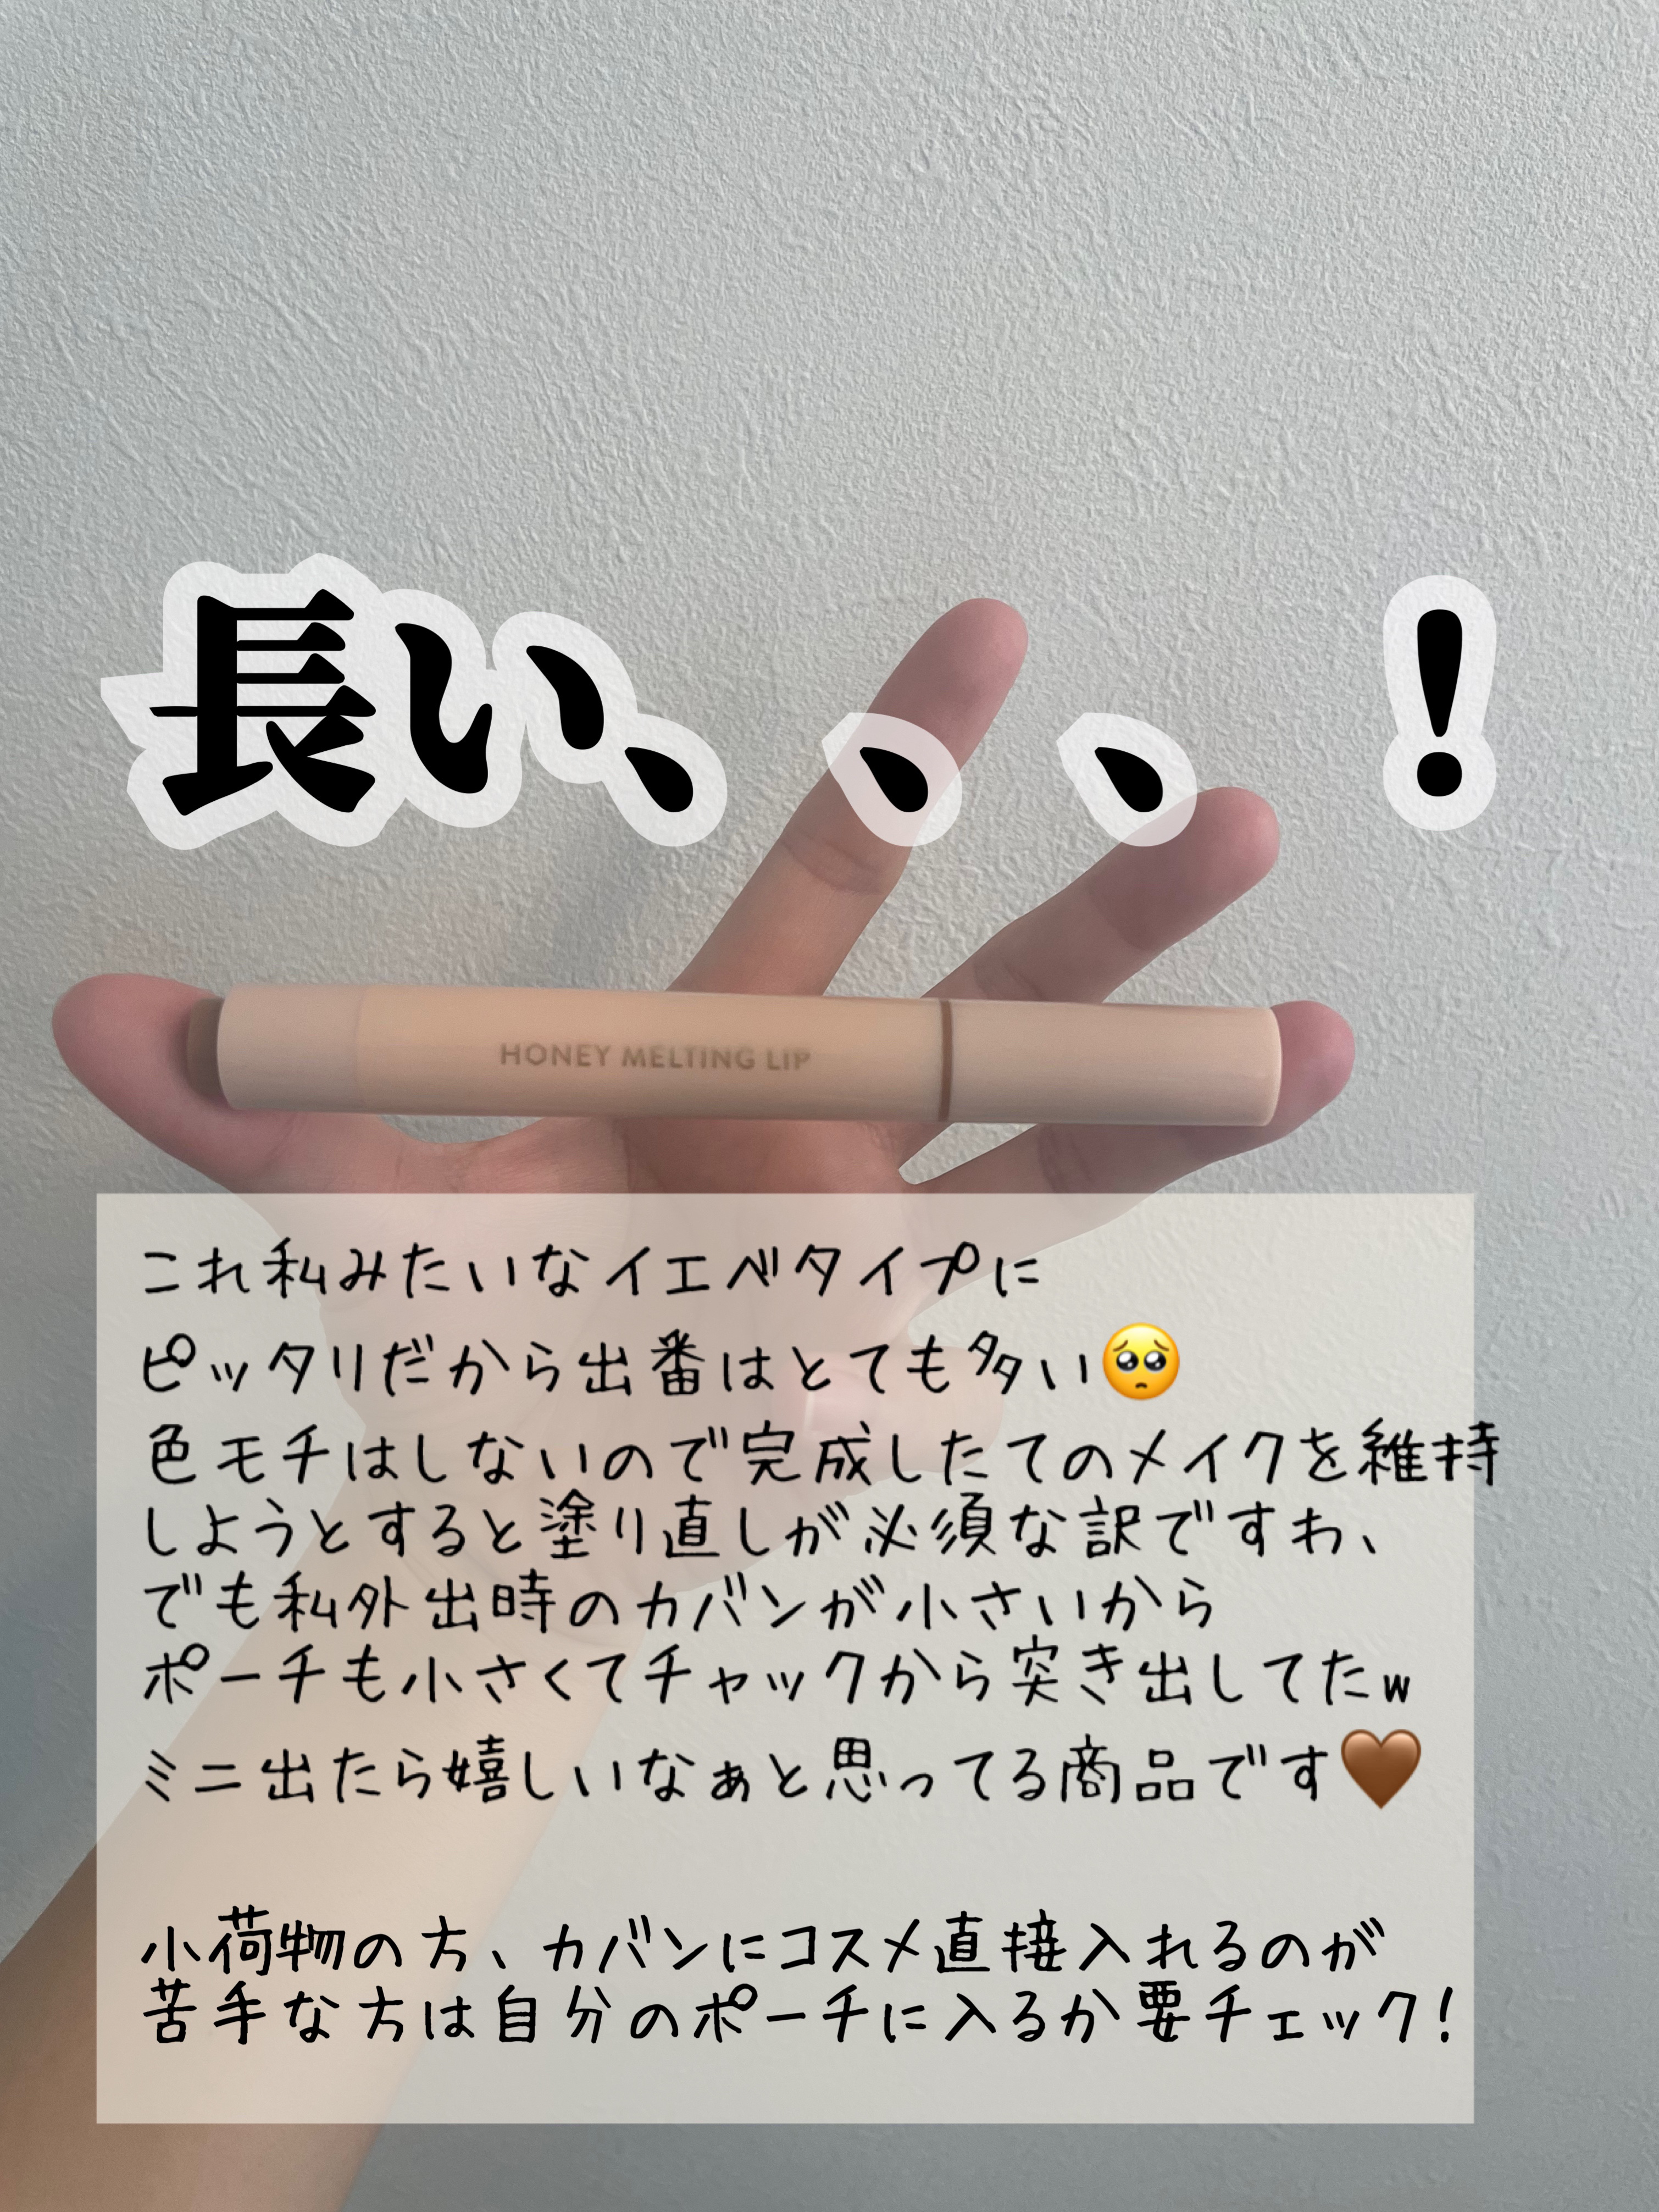 長い、、、！
HONEY MELTING LIP
これ私みたいなイエベタイプに
ピッタリだから出番はとても多い🥺
色モチはしないので完成したてのメイクを維持
しようとすると塗り直しが必須な訳ですわ、
でも私外出時のカバンが小さいから
ポーチも小さくてチャックから突き出してたw
ミニ出たら嬉しいなぁと思ってる商品です🤎
小荷物の方、カバンにコスメ直接入れるのが
苦手な方は自分のポーチに入るか要チェック！